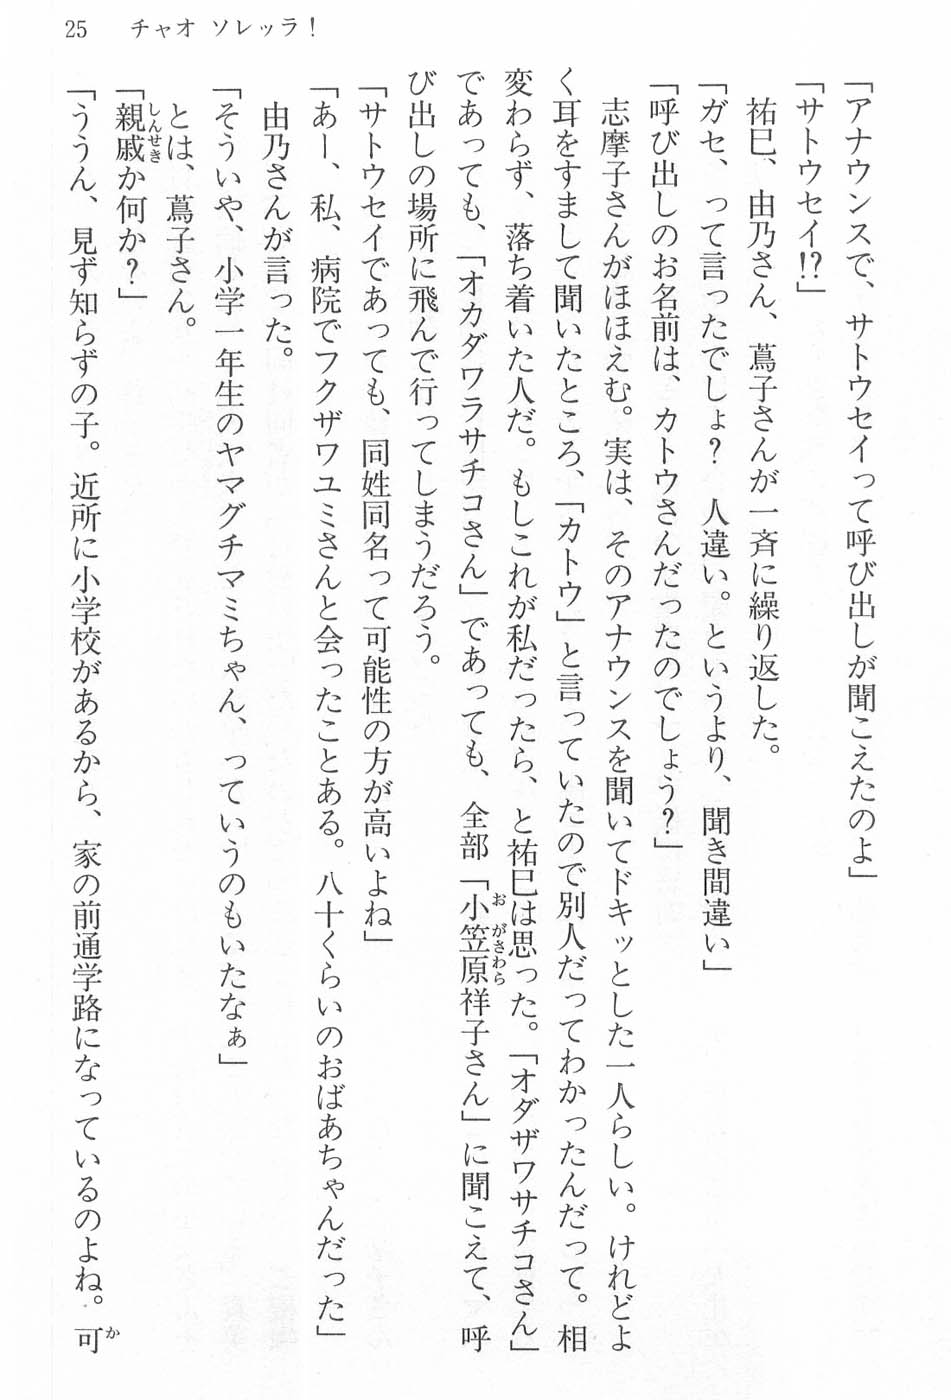 25 チャオ ソレッラ！
「アナウンスで、サトウセイって呼び出しが聞こえたのよ」
「サトウセイ!?」
祐巳、由乃さん、蔦子さんが一斉に繰り返した。
「ガセ、って言ったでしょ？　人違い。というより、聞き間違い」
「呼び出しのお名前は、カトウさんだったのでしょう？」
志摩子さんがほほえむ。実は、そのアナウンスを聞いてドキッとした一人らしい。けれどよ
く耳をすまして聞いたところ、「カトウ」と言っていたので別人だってわかったんだって。相
変わらず、落ち着いた人だ。もしこれが私だったら、と祐巳は思った。「オダザワサチコさん」
であっても、「オカダワラサチコさん」であっても、全部「小笠原祥子さん」に聞こえて、呼
おがさわら
び出しの場所に飛んで行ってしまうだろう。
「サトウセイであっても、同姓同名って可能性の方が高いよね」
「あー、私、病院でフクザワユミさんと会ったことある。八十くらいのおばあちゃんだった」
由乃さんが言った。
「そういや、小学一年生のヤマグチマミちゃん、っていうのもいたなぁ」
とは、蔦子さん。
「親戚か何か？」
しんせき
「ううん、見ず知らずの子。近所に小学校があるから、家の前通学路になっているのよね。可
か